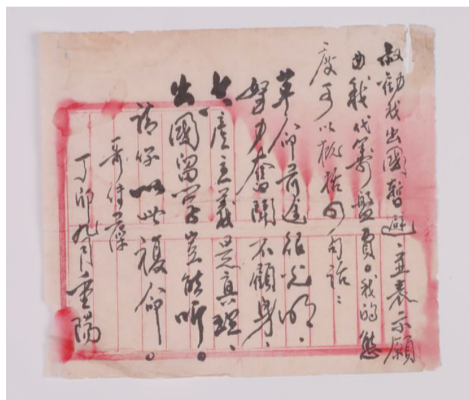 叔勸我出國暫避、並表示願
由我代籌盤費。我的態
度可以概括四句話：
革命前途很光明、
努力奮鬥不顧身、
共產主義是真理、
出國留學豈能听。
請你以此復命。
哥付
丁卯九月重陽